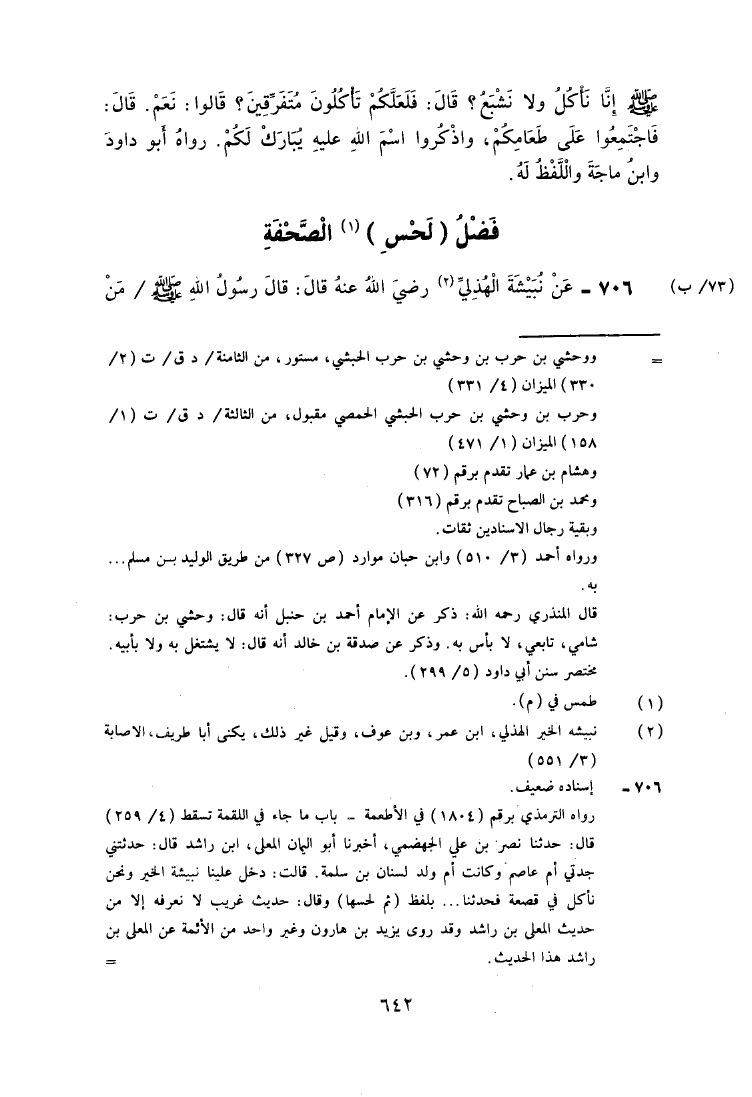 ﷺ إِنَّا نَأْكُلُ ولا نَشْبَعُ؟ قَالَ: فَلَعَلَّكُمْ تَأْكُلُونَ مُتَفَرِّقِينَ؟ قالوا: نَعَمْ. قَالَ:
فَاجْتَمِعُوا عَلَى طَعَامِكُمْ، واذْكُروا اسْمَ اللهِ عليهِ يُبَارَكْ لَكُمْ. رواهُ أَبو داودَ
وابنُ ماجَةَ واللَّفْظُ لَهُ.
فَضْلُ ( لَحْسِ )(١) الْصَّحْفَةِ
(٧٣/ ب) ٧٠٦ ـ عَنْ نُبَيْشَةَ الْهُذِليِّ(٢) رضيَ اللهُ عنهُ قالَ: قالَ رسُولُ اللهِ ﷺ / مَنْ
= ووحشي بن حرب بن وحشي بن حرب الحبشي، مستور، من الثامنة/ د ق/ ت (٢/
٣٣٠) الميزان (٤/ ٣٣١)
وحرب بن وحشي بن حرب الحبشي الحمصي مقبول، من الثالثة/ د ق/ ت (١/
١٥٨) الميزان (١/ ٤٧١)
وهشام بن عمار تقدم برقم (٧٢)
ومحمد بن الصباح تقدم برقم (٣١٦)
وبقية رجال الاسنادين ثقات.
ورواه أحمد (٣/ ٥١٠) وابن حبان موارد (ص ٣٢٧) من طريق الوليد بـن مسلم...
به.
قال المنذري رحمه الله: ذكر عن الإمام أحمد بن حنبل أنه قال: وحشي بن حرب:
شامي، تابعي، لا بأس به. وذكر عن صدقة بن خالد أنه قال: لا يشتغل به ولا بأبيه.
مختصر سنن أبي داود (٥/ ٢٩٩).
(١) طمس في (م).
(٢) نبيشه الخير الهذلي، ابن عمر، وبن عوف، وقيل غير ذلك، يكنى أبا طريف، الاصابة
(٣/ ٥٥١)
٧٠٦ـ إسناده ضعيف.
رواه الترمذي برقم (١٨٠٤) في الأطعمة ـ باب ما جاء في اللقمة تسقط (٤/ ٢٥٩)
قال: حدثنا نصر بن علي الجهضمي، أخبرنا أبو اليمان المعلى، ابن راشد قال: حدثتني
جدتي أم عاصم وكانت أم ولد لسنان بن سلمة. قالت: دخل علينا نبيشة الخير ونحن
نأكل في قصعة فحدثنا... بلفظ (ثم لحسها) وقال: حديث غريب لا نعرفه إلا من
حديث المعلى بن راشد وقد روى يزيد بن هارون وغير واحد من الأئمة عن المعلى بن
راشد هذا الحديث. =
٦٤٢